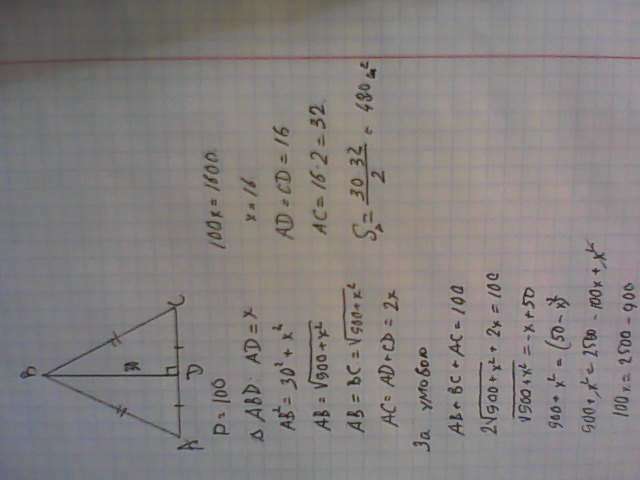 B
30
A D C
P=100
Δ ABD. AD=x
AB²=30²+x²
AB=√900+x²
AB=BC=√900+x²
AC=AD+CD=2x
За умовою
AB+BC+AC=100
2√900+x²+2x=100
√900+x²=-x+50
900+x²=(50-x)²
900+x²=2500-100x+x²
100x=2500-900
100x=1600
x=16
AD=CD=16
AC=16·2=32
S▵=30 32/2=480 м²